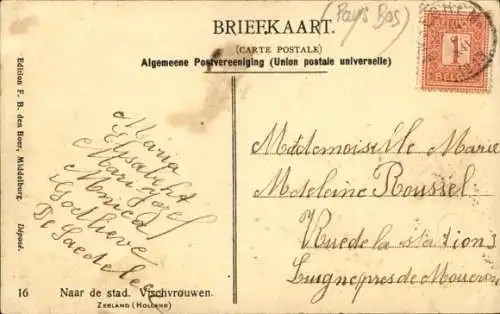 BRIEFKAART.
(Pays Bas)
(CARTE POSTALE)
Algemeene Postvereeniging (Union postale universelle)
1
BELGI
Edition F. B. den Boer, Middelburg. Déposé.
Maria
Elisabeht
Marijozef
Monica
Godlieve
De Saedeleer
Mademoiselle Marie
Madeleine Roussel
Rue de la stations
Luigne pres de Moueron
16 Naar de stad. Vischvrouwen.
ZEELAND (HOLLAND)